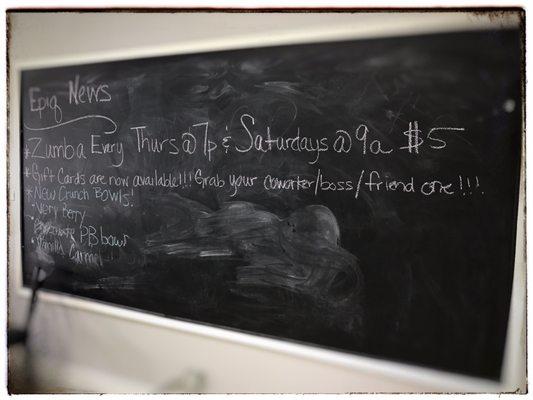 Epiq News
*Zumba Every Thurs@7p & Saturdays@9a $5
*Gift Cards are now available!!! Grab your coworker/boss/friend one!!!
*New Crunch Bowls!
Very Berry
PB
Vanilla Carmel